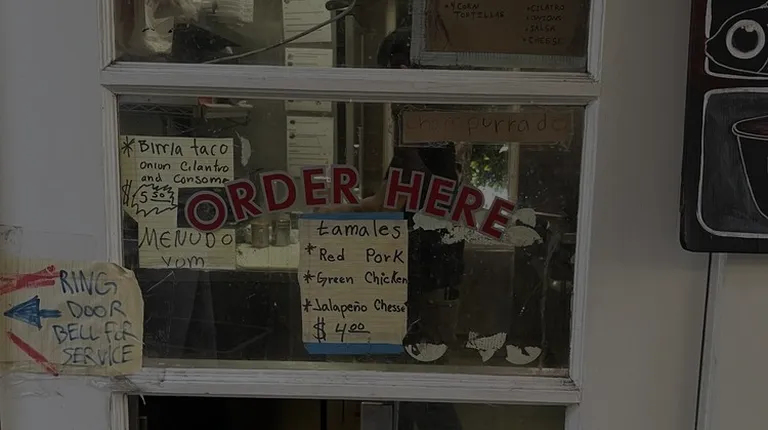 *CORN
TORTILLAS
*CILATRO
*ONIONS
*SALSA
*CHEESE
* Birria taco
onion Cilantro
and Consome
$5.50
MENUDO
yom
ORDER HERE
tamales
* Red Pork
* Green Chicken
* Jalapeño Chesse
$ 4.00
RING
DOOR
BELL FOR
SERVICE